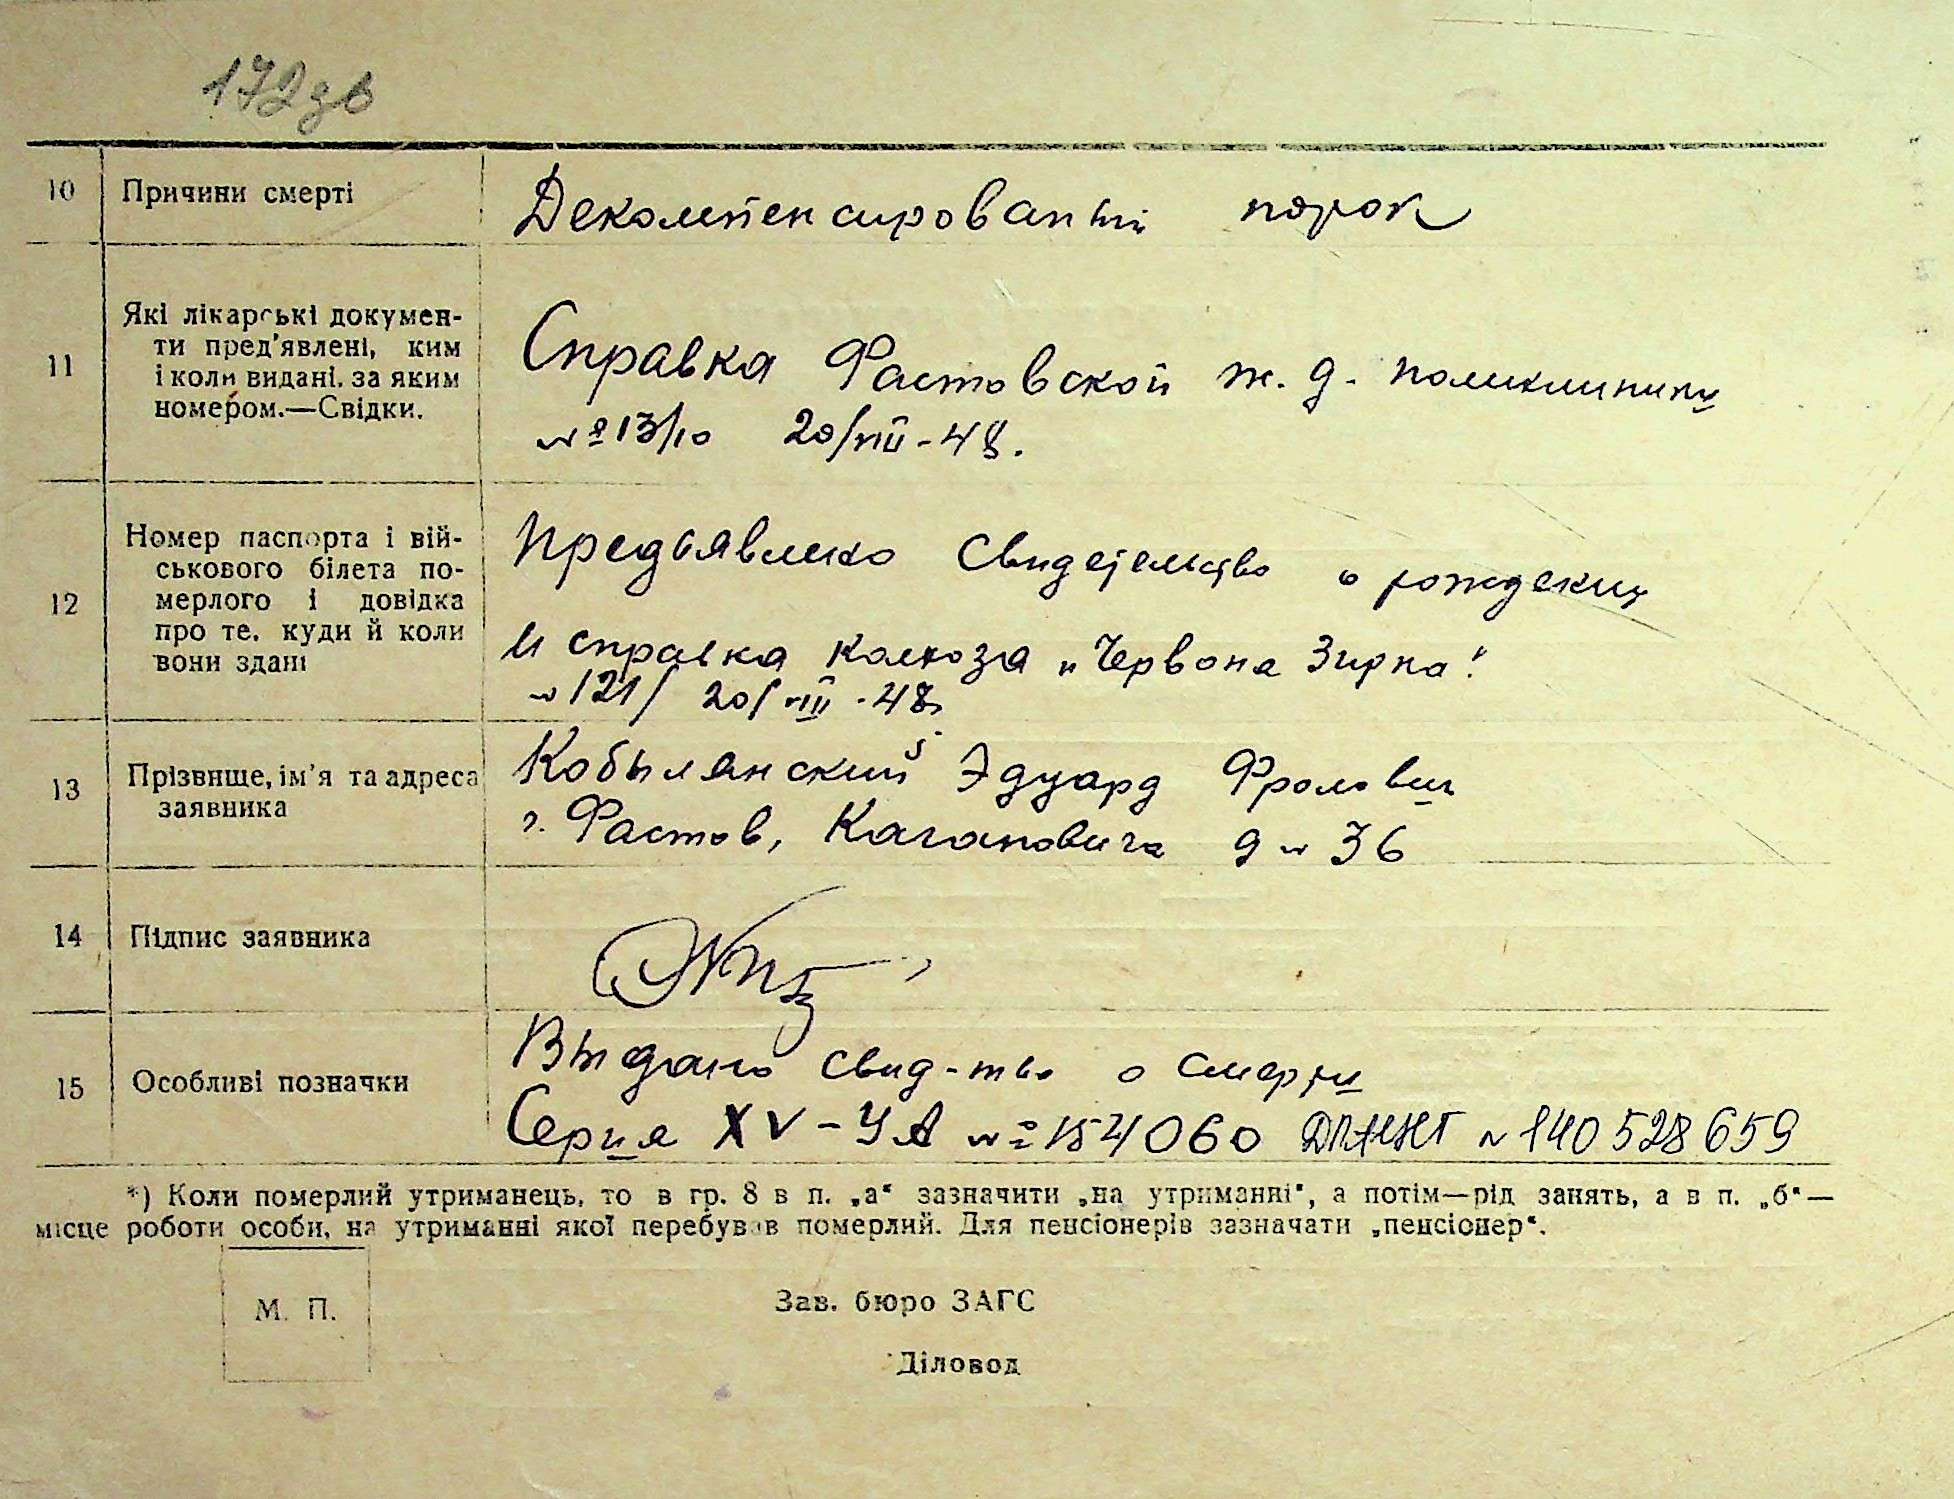 172зв
10 Причини смерті Декомпенсированный порок
11 Які лікарські докумен-
ти пред'явлені, ким
і коли видані, за яким
номером.—Свідки.
Справка Фастовской ж. д. поликлиники
№ 13/10 20/VIII-48.
12 Номер паспорта і вій-
ськового білета по-
мерлого і довідка
про те, куди й коли
вони здані
Предъявлено свидетельство о рождении
и справка колхоза „Червона Зирка"
№ 121/ 20/VIII-48
13 Прізвище, ім'я та адреса
заявника
Кобылянский Эдуард Фролович
г. Фастов, Кагановича д № 36
14 Підпис заявника
15 Особливі позначки
Выдано свид-тво о смерти
Серия XV-УА № 154060 № 140528659
*) Коли померлий утриманець, то в гр. 8 в п. „а" зазначити „на утриманні", а потім—рід занять, а в п. „б"—
місце роботи особи, на утриманні якої перебував померлий. Для пенсіонерів зазначати „пенсіонер".
М. П.
Зав. бюро ЗАГС
Діловод